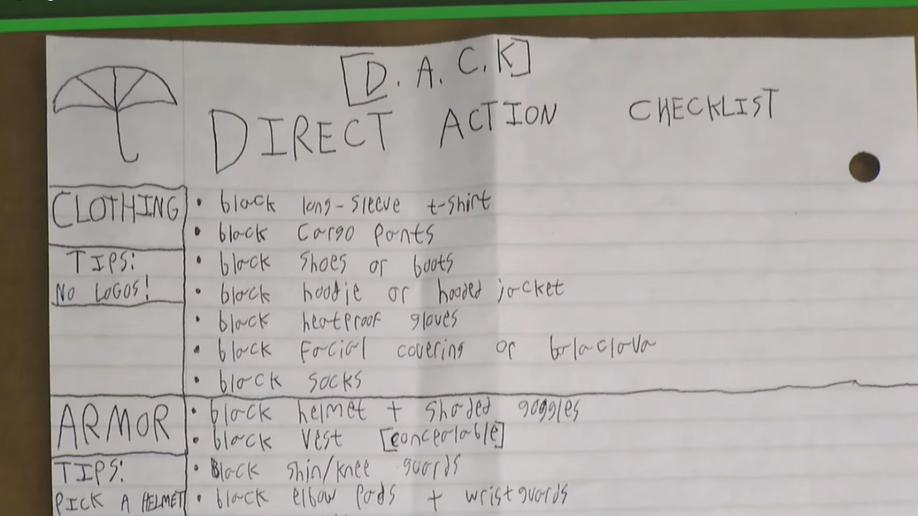 [D.A.C.K]
DIRECT ACTION CHECKLIST
CLOTHING
TIPS:
NO LOGOS!
• black long-sleeve t-shirt
• black cargo pants
• black shoes or boots
• black hoodie or hooded jacket
• black heatproof gloves
• black facial covering or balaclava
• black socks
ARMOR
TIPS:
PICK A HELMET
• black helmet + shaded goggles
• black vest [concealable]
• black shin/knee guards
• black elbow pads + wrist guards